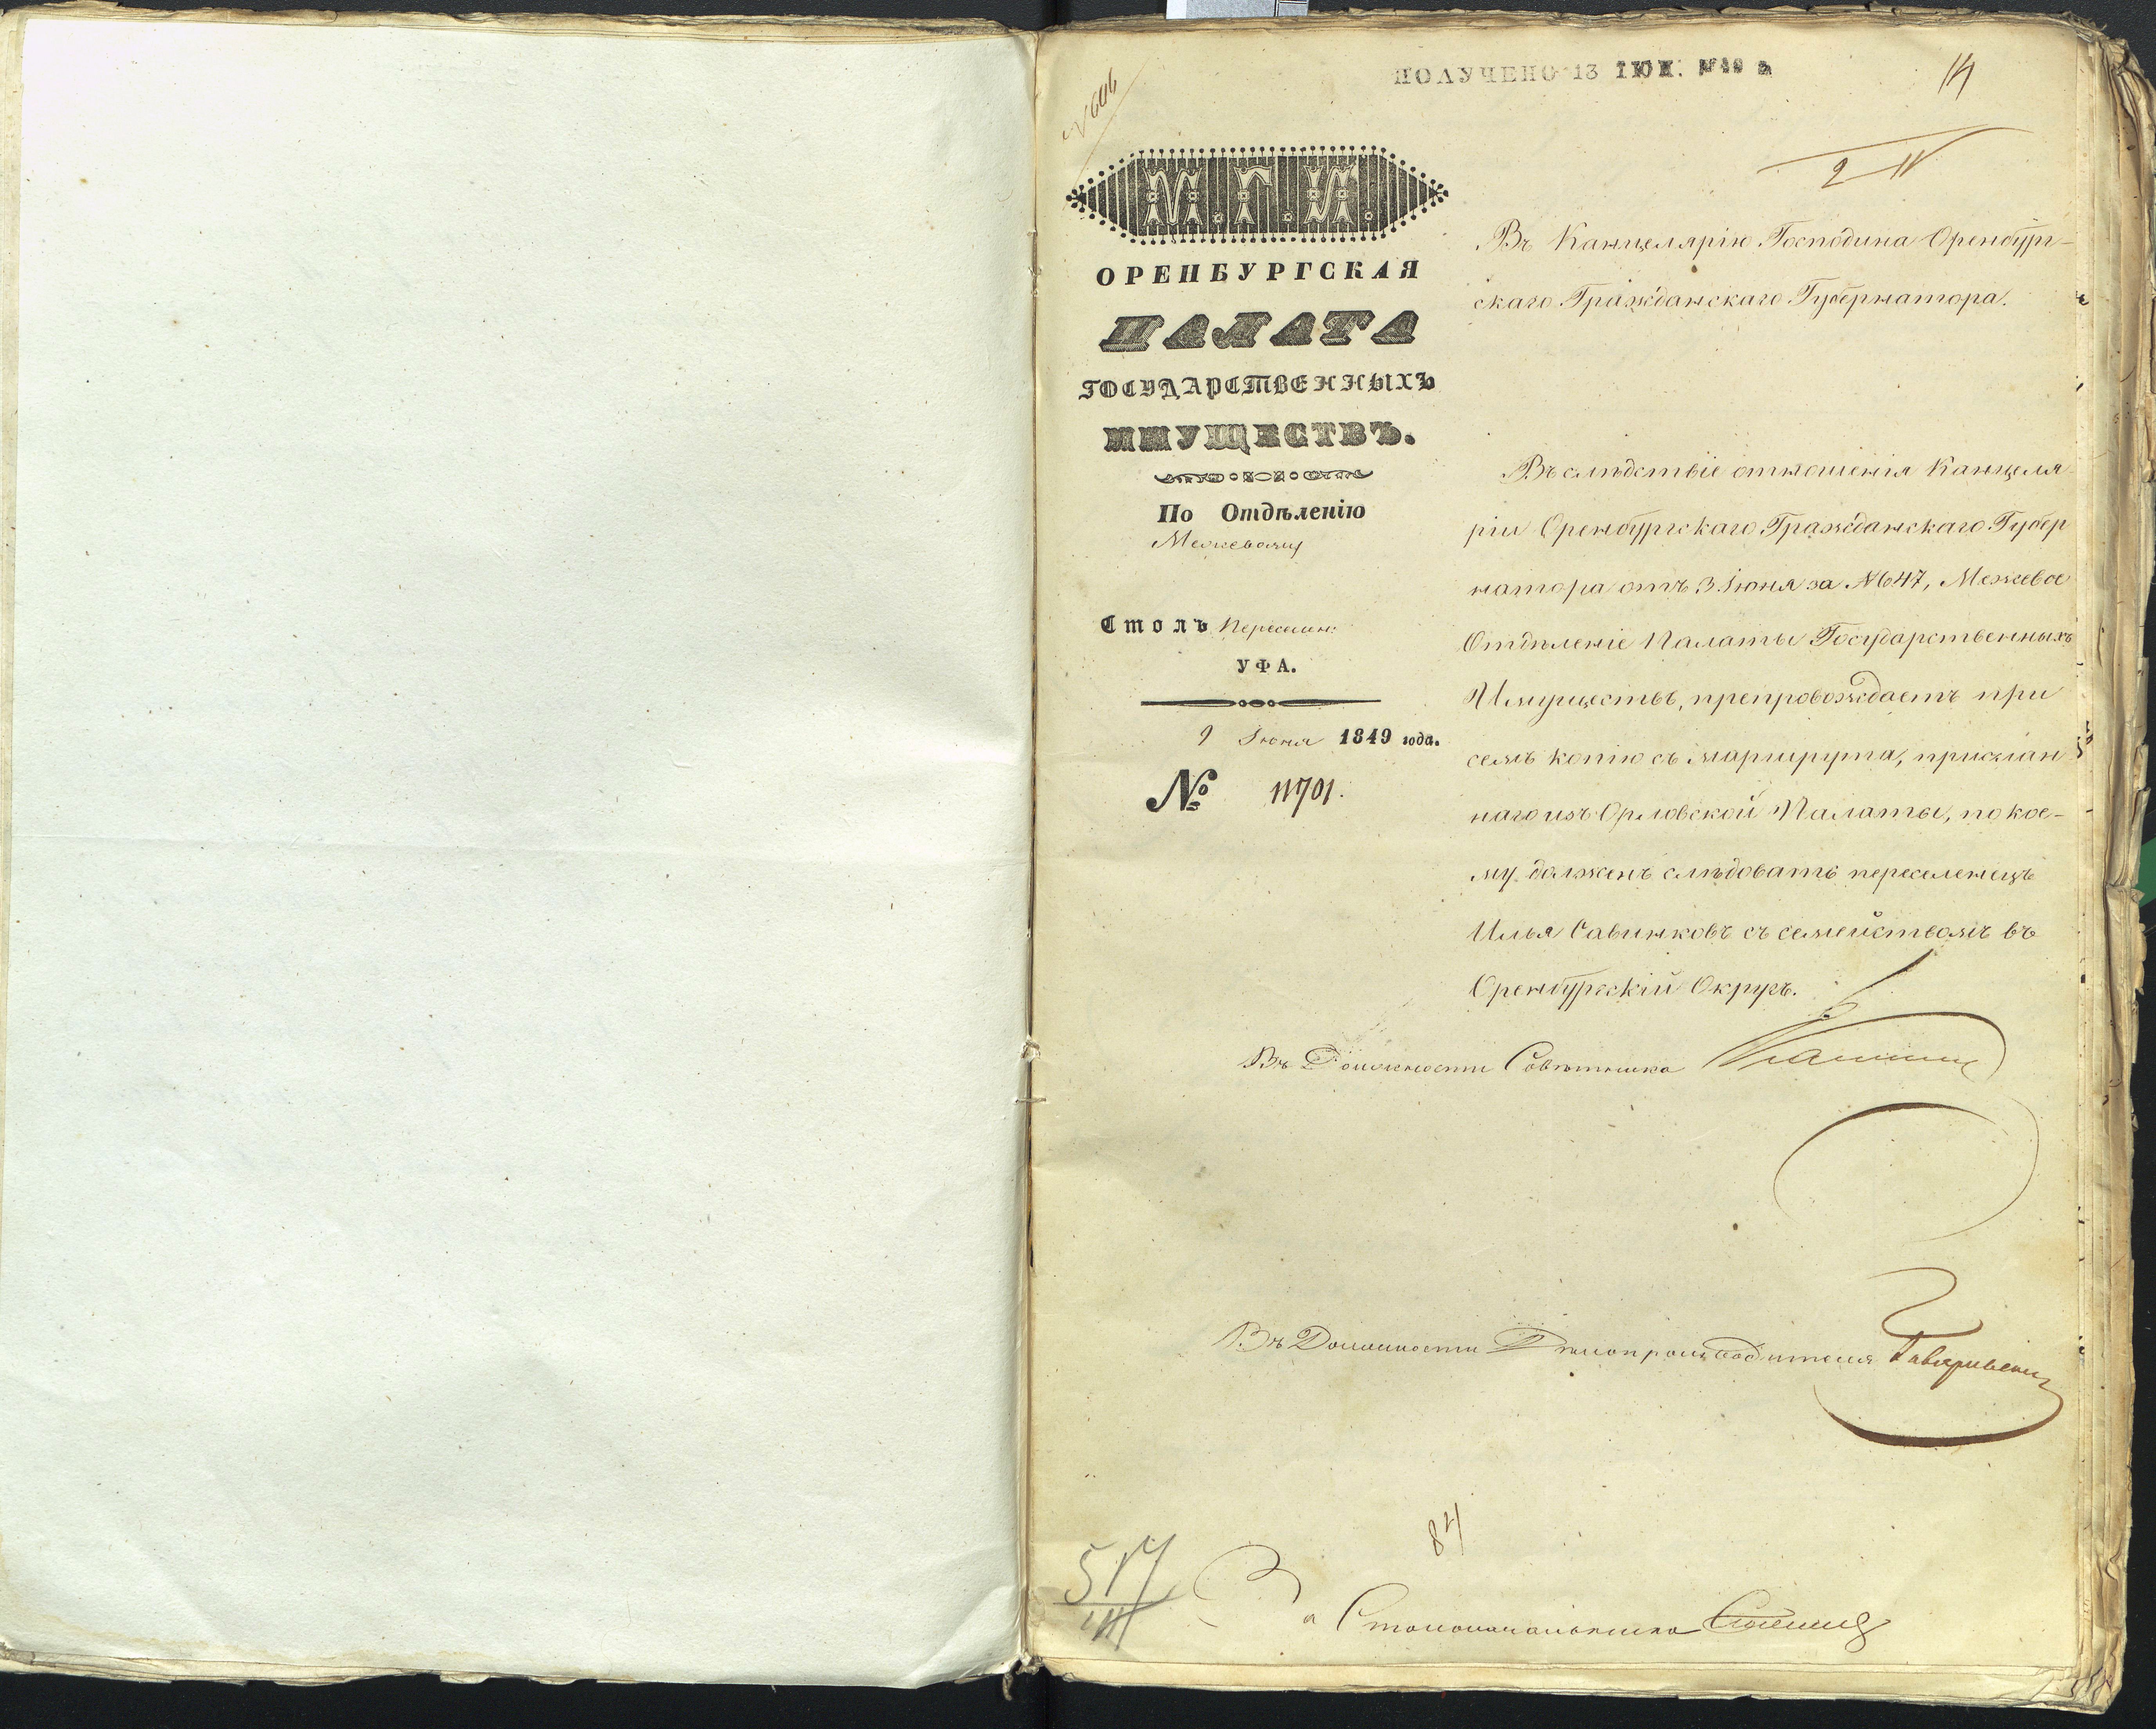 ПОЛУЧЕНО 13 ІЮН. 1849 г.
14
М.Г.И.
ОРЕНБУРГСКАЯ
ПАЛАТА
ГОСУДАРСТВЕННЫХЪ
ИМУЩЕСТВЪ.
По Отдѣленію
Межевому
Столъ Переселен:
УФА.
9 Іюня 1849 года.
№ 11701.
Въ Канцелярію Господина Оренбург-
скаго Гражданскаго Губернатора.
Въ слѣдствіе отношенія Канцеля-
ріи Оренбургскаго Гражданскаго Губер
натора отъ 3 Іюня за №647, Межевое
Отдѣленіе Палаты Государственныхъ
Имуществъ, препровождаетъ при
семъ копію съ маршрута, прислан
наго изъ Орловской Палаты, по кое-
му долженъ слѣдовать переселенецъ
Илья Савинковъ съ семействомъ въ
Оренбургскій Округъ.
Въ Должности Совѣтника
Въ Должности Дѣлопроизводителя
84
За Столоначальника